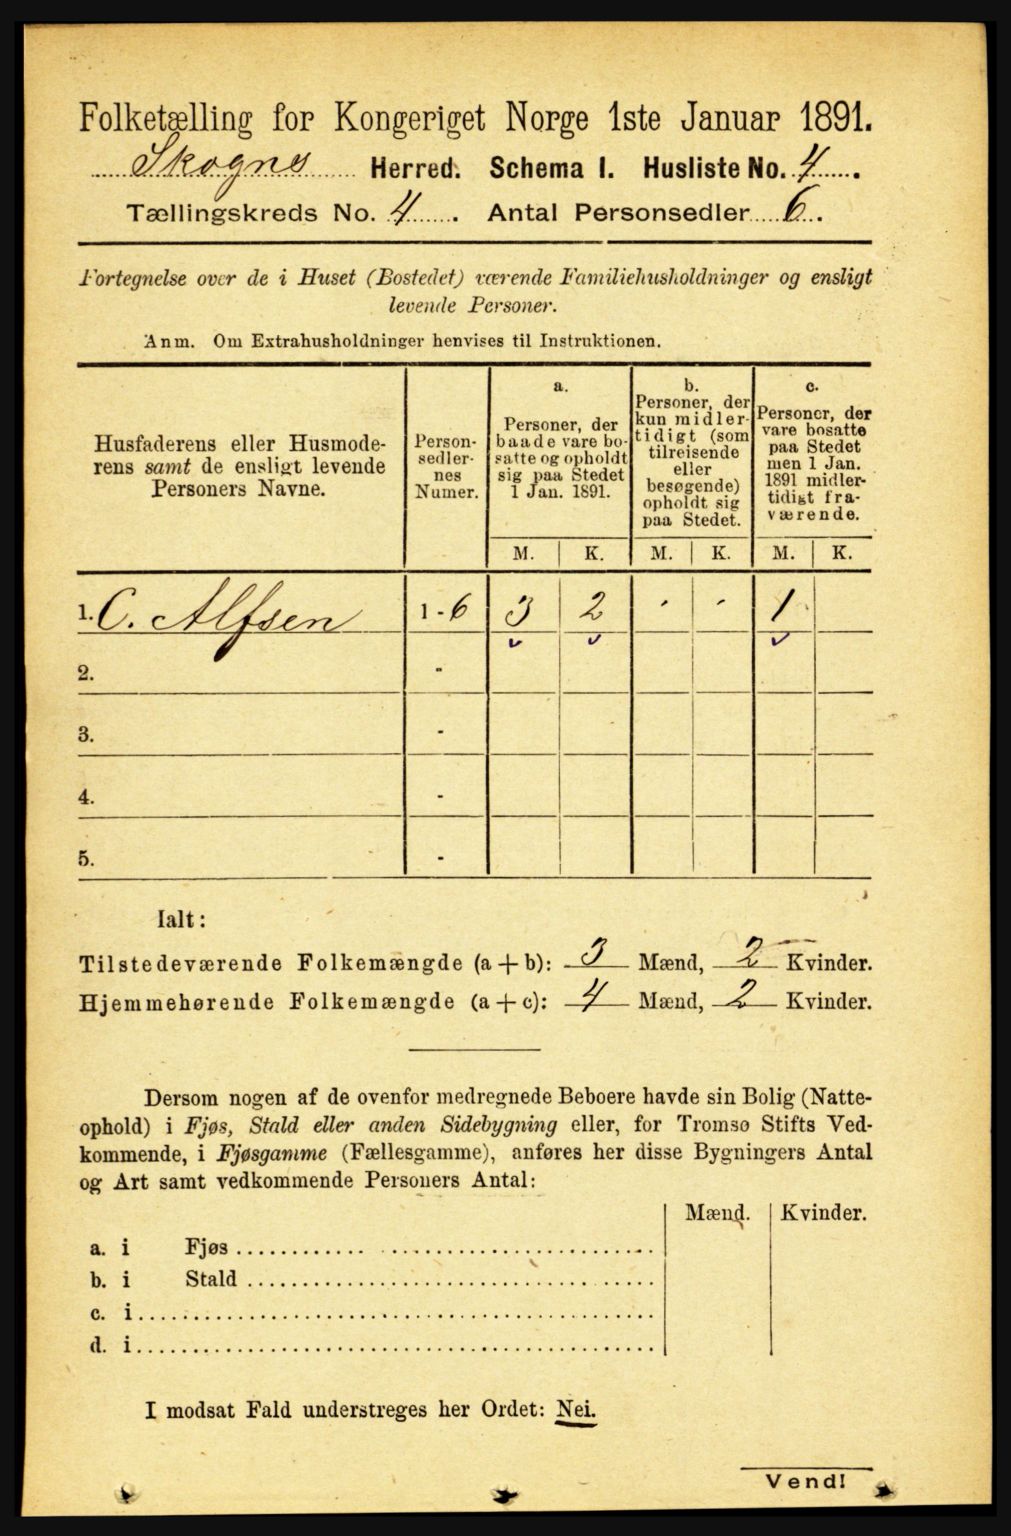 Folketælling for Kongeriget Norge 1ste Januar 1891.
Skogns Herred. Schema I. Husliste No. 4.
Tællingskreds No. 4. Antal Personsedler 6.
Fortegnelse over de i Huset (Bostedet) værende Familiehusholdninger og ensligt
levende Personer.
Anm. Om Extrahusholdninger henvises til Instruktionen.
Husfaderens eller Husmode-
rens samt de ensligt levende
Personers Navne.
Person-
sedler-
nes
Numer.
a.
Personer, der
baade vare bo-
satte og opholdt
sig paa Stedet
1 Jan. 1891.
b.
Personer, der
kun midler-
tidigt (som
tilreisende
eller
besøgende)
opholdt sig
paa Stedet.
c.
Personer, der
vare bosatte
paa Stedet
men 1 Jan.
1891 midler-
tidigt fra-
værende.
M. K. M. K. M. K.
1. C. Alfsen 1-6 3 2 · · 1
2. -
3. -
4. -
5. -
Ialt:
Tilstedeværende Folkemængde (a + b): 3 Mænd, 2 Kvinder.
Hjemmehørende Folkemængde (a + c): 4 Mænd, 2 Kvinder.
Dersom nogen af de ovenfor medregnede Beboere havde sin Bolig (Natte-
ophold) i Fjøs, Stald eller anden Sidebygning eller, for Tromsø Stifts Ved-
kommende, i Fjøsgamme (Fællesgamme), anføres her disse Bygningers Antal
og Art samt vedkommende Personers Antal:
Mænd. Kvinder.
a. i Fjøs
b. i Stald
c. i
d. i
I modsat Fald understreges her Ordet: Nei.
Vend!